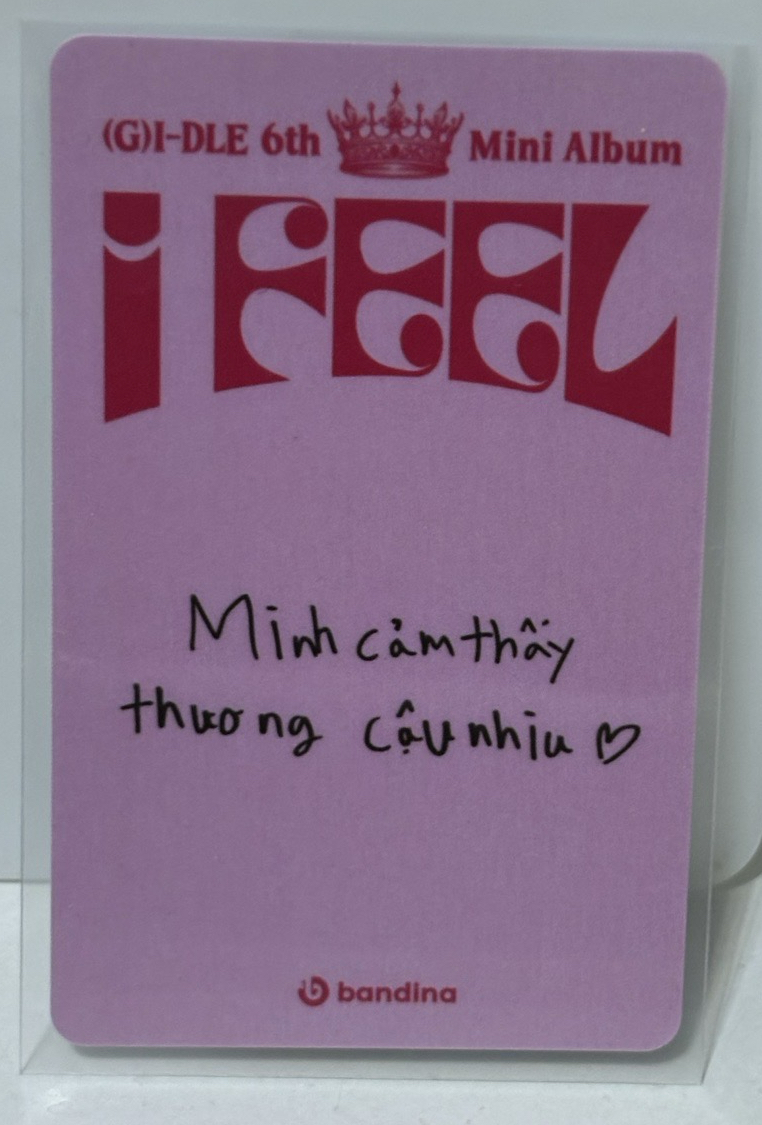 (G)I-DLE 6th Mini Album
i FEEL
Minh cảm thấy
thương cậu nhiu ♡
bandina